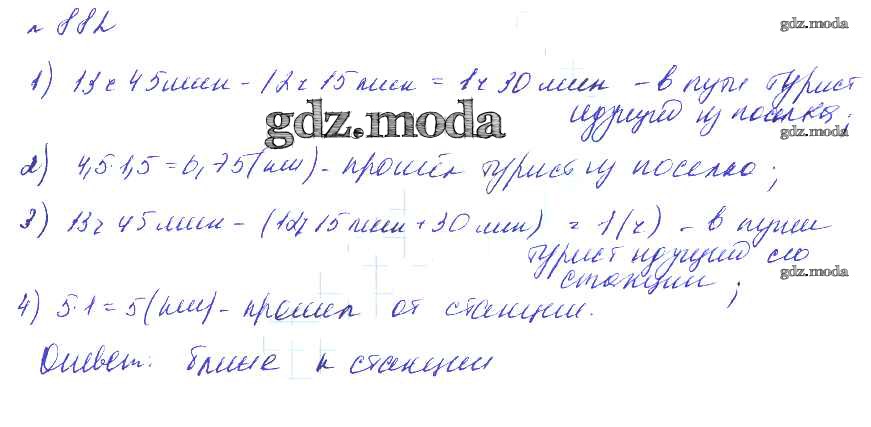 № 882
gdz.moda
1) 13ч 45мин - 12ч 15мин = 1ч 30мин - в пути турист
gdz.moda
идущий из поселка;
gdz.moda
gdz.moda
2) 4,5·1,5 = 6,75(км) - прошёл турист из поселка;
3) 13ч 45мин - (12ч 15мин + 30мин) = 1(ч) - в пути
турист идущий со
станции;
gdz.moda
4) 5·1 = 5(км) - прошел от станции.
Ответ: ближе к станции
gdz.moda